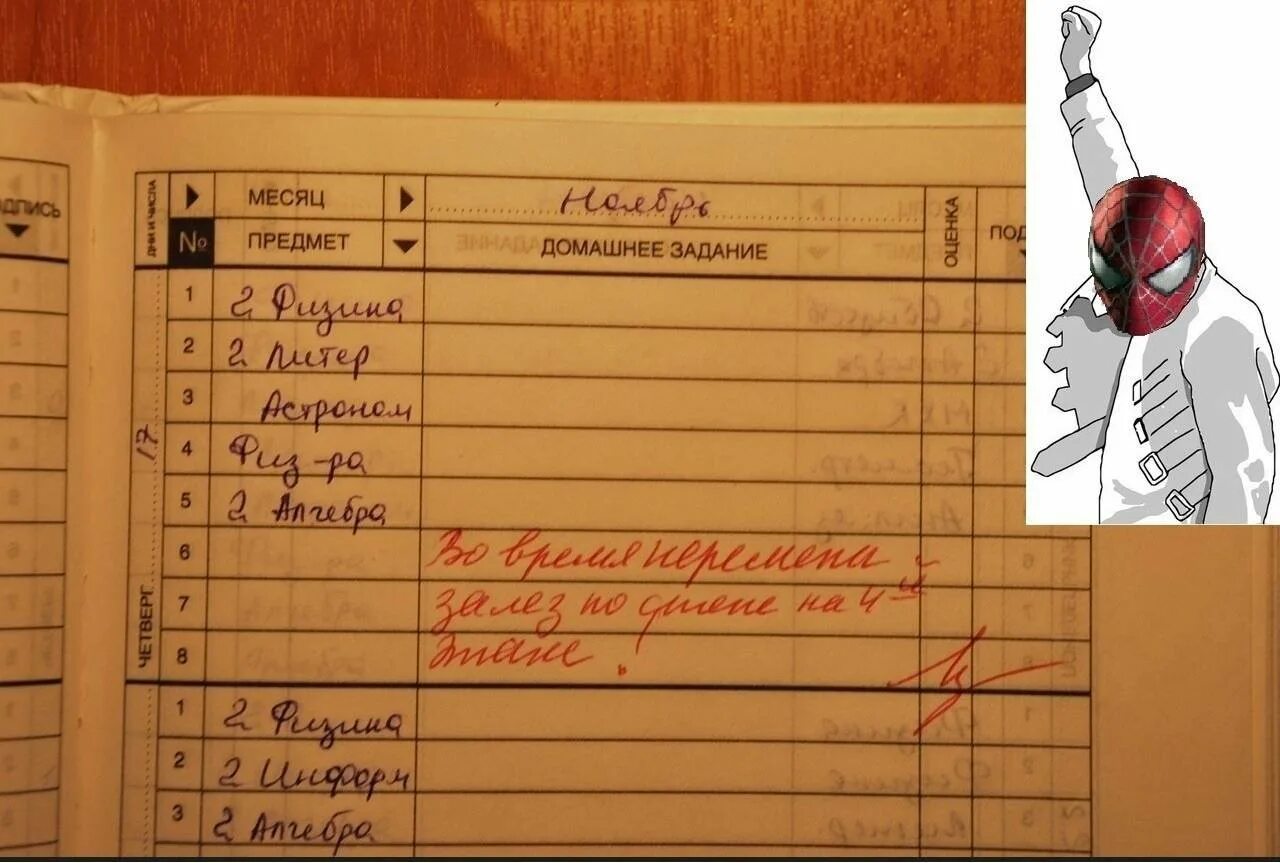 ДПИСЬ
ДНИ И ЧИСЛА
МЕСЯЦ Ноябрь
№ ПРЕДМЕТ ДОМАШНЕЕ ЗАДАНИЕ ОЦЕНКА ПОД
17
ЧЕТВЕРГ
1 2 Физика
2 2 Литер
3 Астроном
4 Физ-ра
5 2 Алгебра
6 Во время перемены
7 залез по стене на 4ый
8 этаж!
1 2 Физика
2 2 Информ
3 2 Алгебра